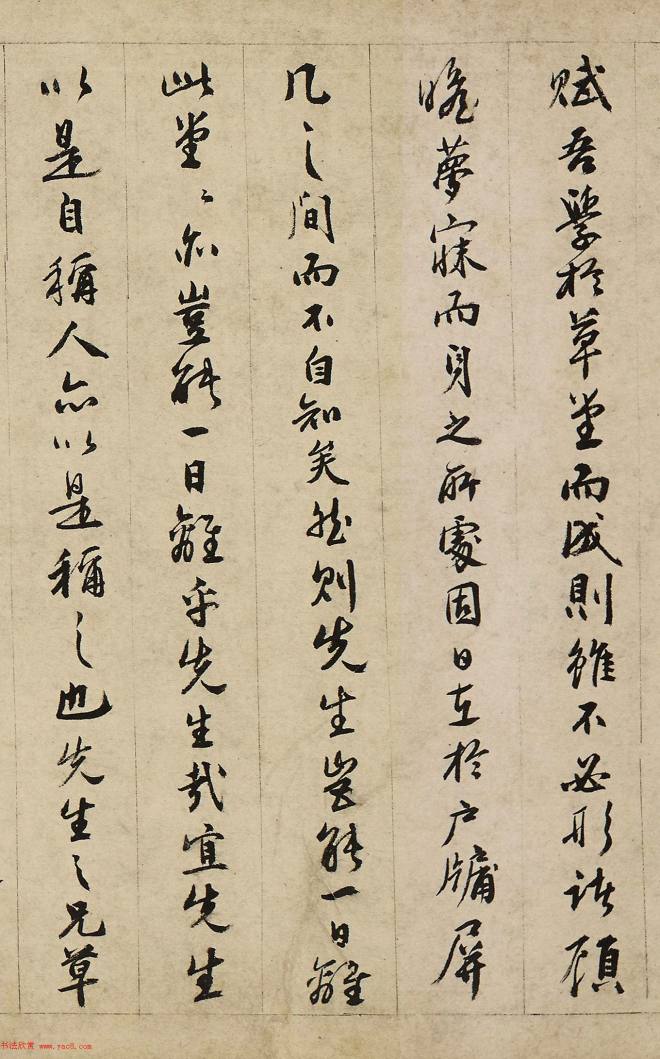 賦吾學於草堂而成則雖不必形諸顧
瞻夢寐而身之所處固日在於戶牖屏
几之間而不自知矣然則先生豈能一日離
此堂〻亦豈能一日離乎先生哉宜先生
以是自稱人亦以是稱之也先生之兄草
书法欣赏 www.yac8.com